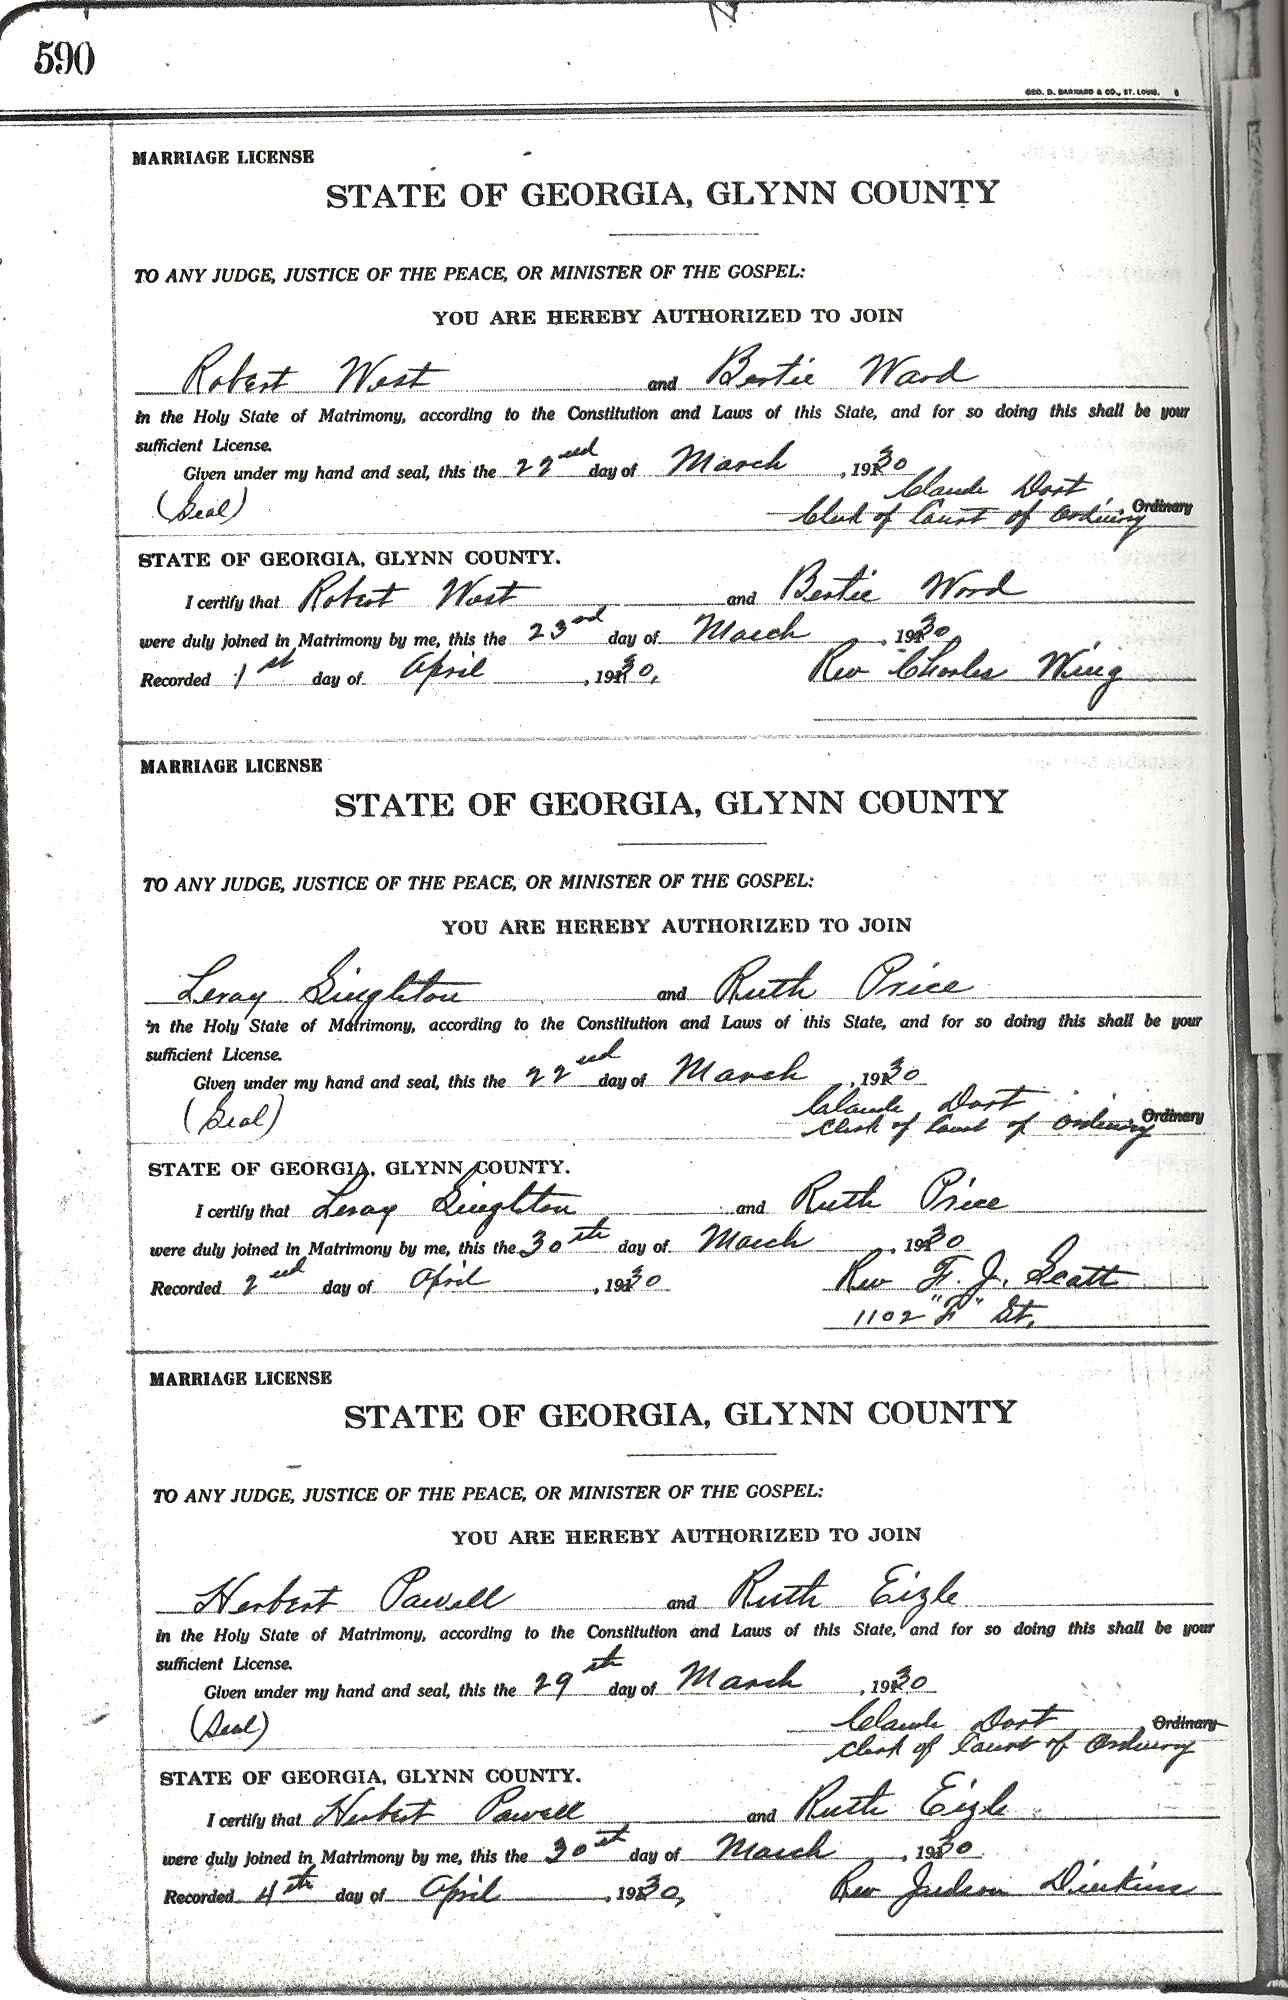 590
GEO. D. BARNARD & CO., ST. LOUIS.
MARRIAGE LICENSE
STATE OF GEORGIA, GLYNN COUNTY
TO ANY JUDGE, JUSTICE OF THE PEACE, OR MINISTER OF THE GOSPEL:
YOU ARE HEREBY AUTHORIZED TO JOIN
Robert West and Bertie Ward
in the Holy State of Matrimony, according to the Constitution and Laws of this State, and for so doing this shall be your
sufficient License.
Given under my hand and seal, this the 22nd day of March, 1930
(Seal) Claude Dart
Clerk of Court of Ordinary Ordinary
STATE OF GEORGIA, GLYNN COUNTY.
I certify that Robert West and Bertie Ward
were duly joined in Matrimony by me, this the 23rd day of March, 1930
Recorded 1st day of April, 1930. Rev Charles Wing
MARRIAGE LICENSE
STATE OF GEORGIA, GLYNN COUNTY
TO ANY JUDGE, JUSTICE OF THE PEACE, OR MINISTER OF THE GOSPEL:
YOU ARE HEREBY AUTHORIZED TO JOIN
Leroy Singleton and Ruth Price
in the Holy State of Matrimony, according to the Constitution and Laws of this State, and for so doing this shall be your
sufficient License.
Given under my hand and seal, this the 22nd day of March, 1930
(Seal) Claude Dart
Clerk of Court of Ordinary Ordinary
STATE OF GEORGIA, GLYNN COUNTY.
I certify that Leroy Singleton and Ruth Price
were duly joined in Matrimony by me, this the 30th day of March, 1930
Recorded 2nd day of April, 1930 Rev F. J. Scott
1102 "F" St.
MARRIAGE LICENSE
STATE OF GEORGIA, GLYNN COUNTY
TO ANY JUDGE, JUSTICE OF THE PEACE, OR MINISTER OF THE GOSPEL:
YOU ARE HEREBY AUTHORIZED TO JOIN
Herbert Powell and Ruth Eizle
in the Holy State of Matrimony, according to the Constitution and Laws of this State, and for so doing this shall be your
sufficient License.
Given under my hand and seal, this the 29th day of March, 1930
(Seal) Claude Dart, Ordinary
Clerk of Court of Ordinary
STATE OF GEORGIA, GLYNN COUNTY.
I certify that Herbert Powell and Ruth Eizle
were duly joined in Matrimony by me, this the 30st day of March, 1930
Recorded 4th day of April, 1930, Rev Judson Dinkins